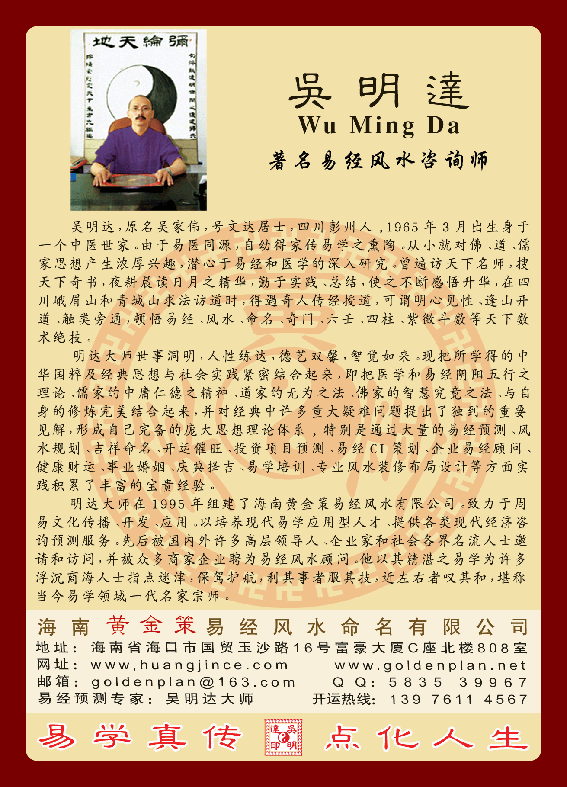 彌綸天地
吳明達
Wu Ming Da
著名易经风水咨询师
吴明达，原名吴家伟，号文达居士，四川彭州人，1965年3月出生身于
一个中医世家。由于易医同源，自幼得家传易学之熏陶。从小就对佛、道、儒
家思想产生浓厚兴趣，潜心于易经和医学的深入研究。曾遍访天下名师，搜
天下奇书，夜耕晨读日月之精华，勤于实践、总结，使之不断感悟升华，在四
川峨眉山和青城山求法访道时，得遇奇人传经授道，可谓明心见性、逢山开
道、触类旁通，顿悟易经、风水、命名、奇门、六壬、四柱、紫微斗数等天下数
术绝技。
明达大师世事洞明，人性练达，德艺双馨，智觉如来。现把所学得的中
华国粹及经典思想与社会实践紧密结合起来，即把医学和易经阴阳五行之
理论、儒家的中庸仁德之精神、道家的无为之法、佛家的智慧究竟之法、与自
身的修炼完美结合起来，并对经典中许多重大疑难问题提出了独到的重要
见解，形成自己完备的庞大思想理论体系，特别是通过大量的易经预测、风
水规划、吉祥命名、开运催旺、投资项目预测、易经CI策划、企业易经顾问、
健康财运、事业婚姻、庆典择吉、易学培训、专业风水装修布局设计等方面实
践积累了丰富的宝贵经验。
明达大师在1995年组建了海南黄金策易经风水有限公司。致力于周
易文化传播、开发、应用。以培养现代易学应用型人才、提供各类现代经济咨
询预测服务。先后被国内外许多高层领导人、企业家和社会各界名流人士邀
请和访问，并被众多商家企业聘为易经风水顾问。他以其精湛之易学为许多
浮沉商海人士指点迷津，保驾护航，利其事者服其技，近左右者叹其和，堪称
当今易学领域一代名家宗师。
海南黄金策易经风水命名有限公司
地址：海南省海口市国贸玉沙路16号富豪大厦C座北楼808室
网址：www.huangjince.com www.goldenplan.net
邮箱：goldenplan@163.com QQ：5835 39967
易经预测专家：吴明达大师 开运热线：139 7611 4567
易学真传 吳明達印 点化人生